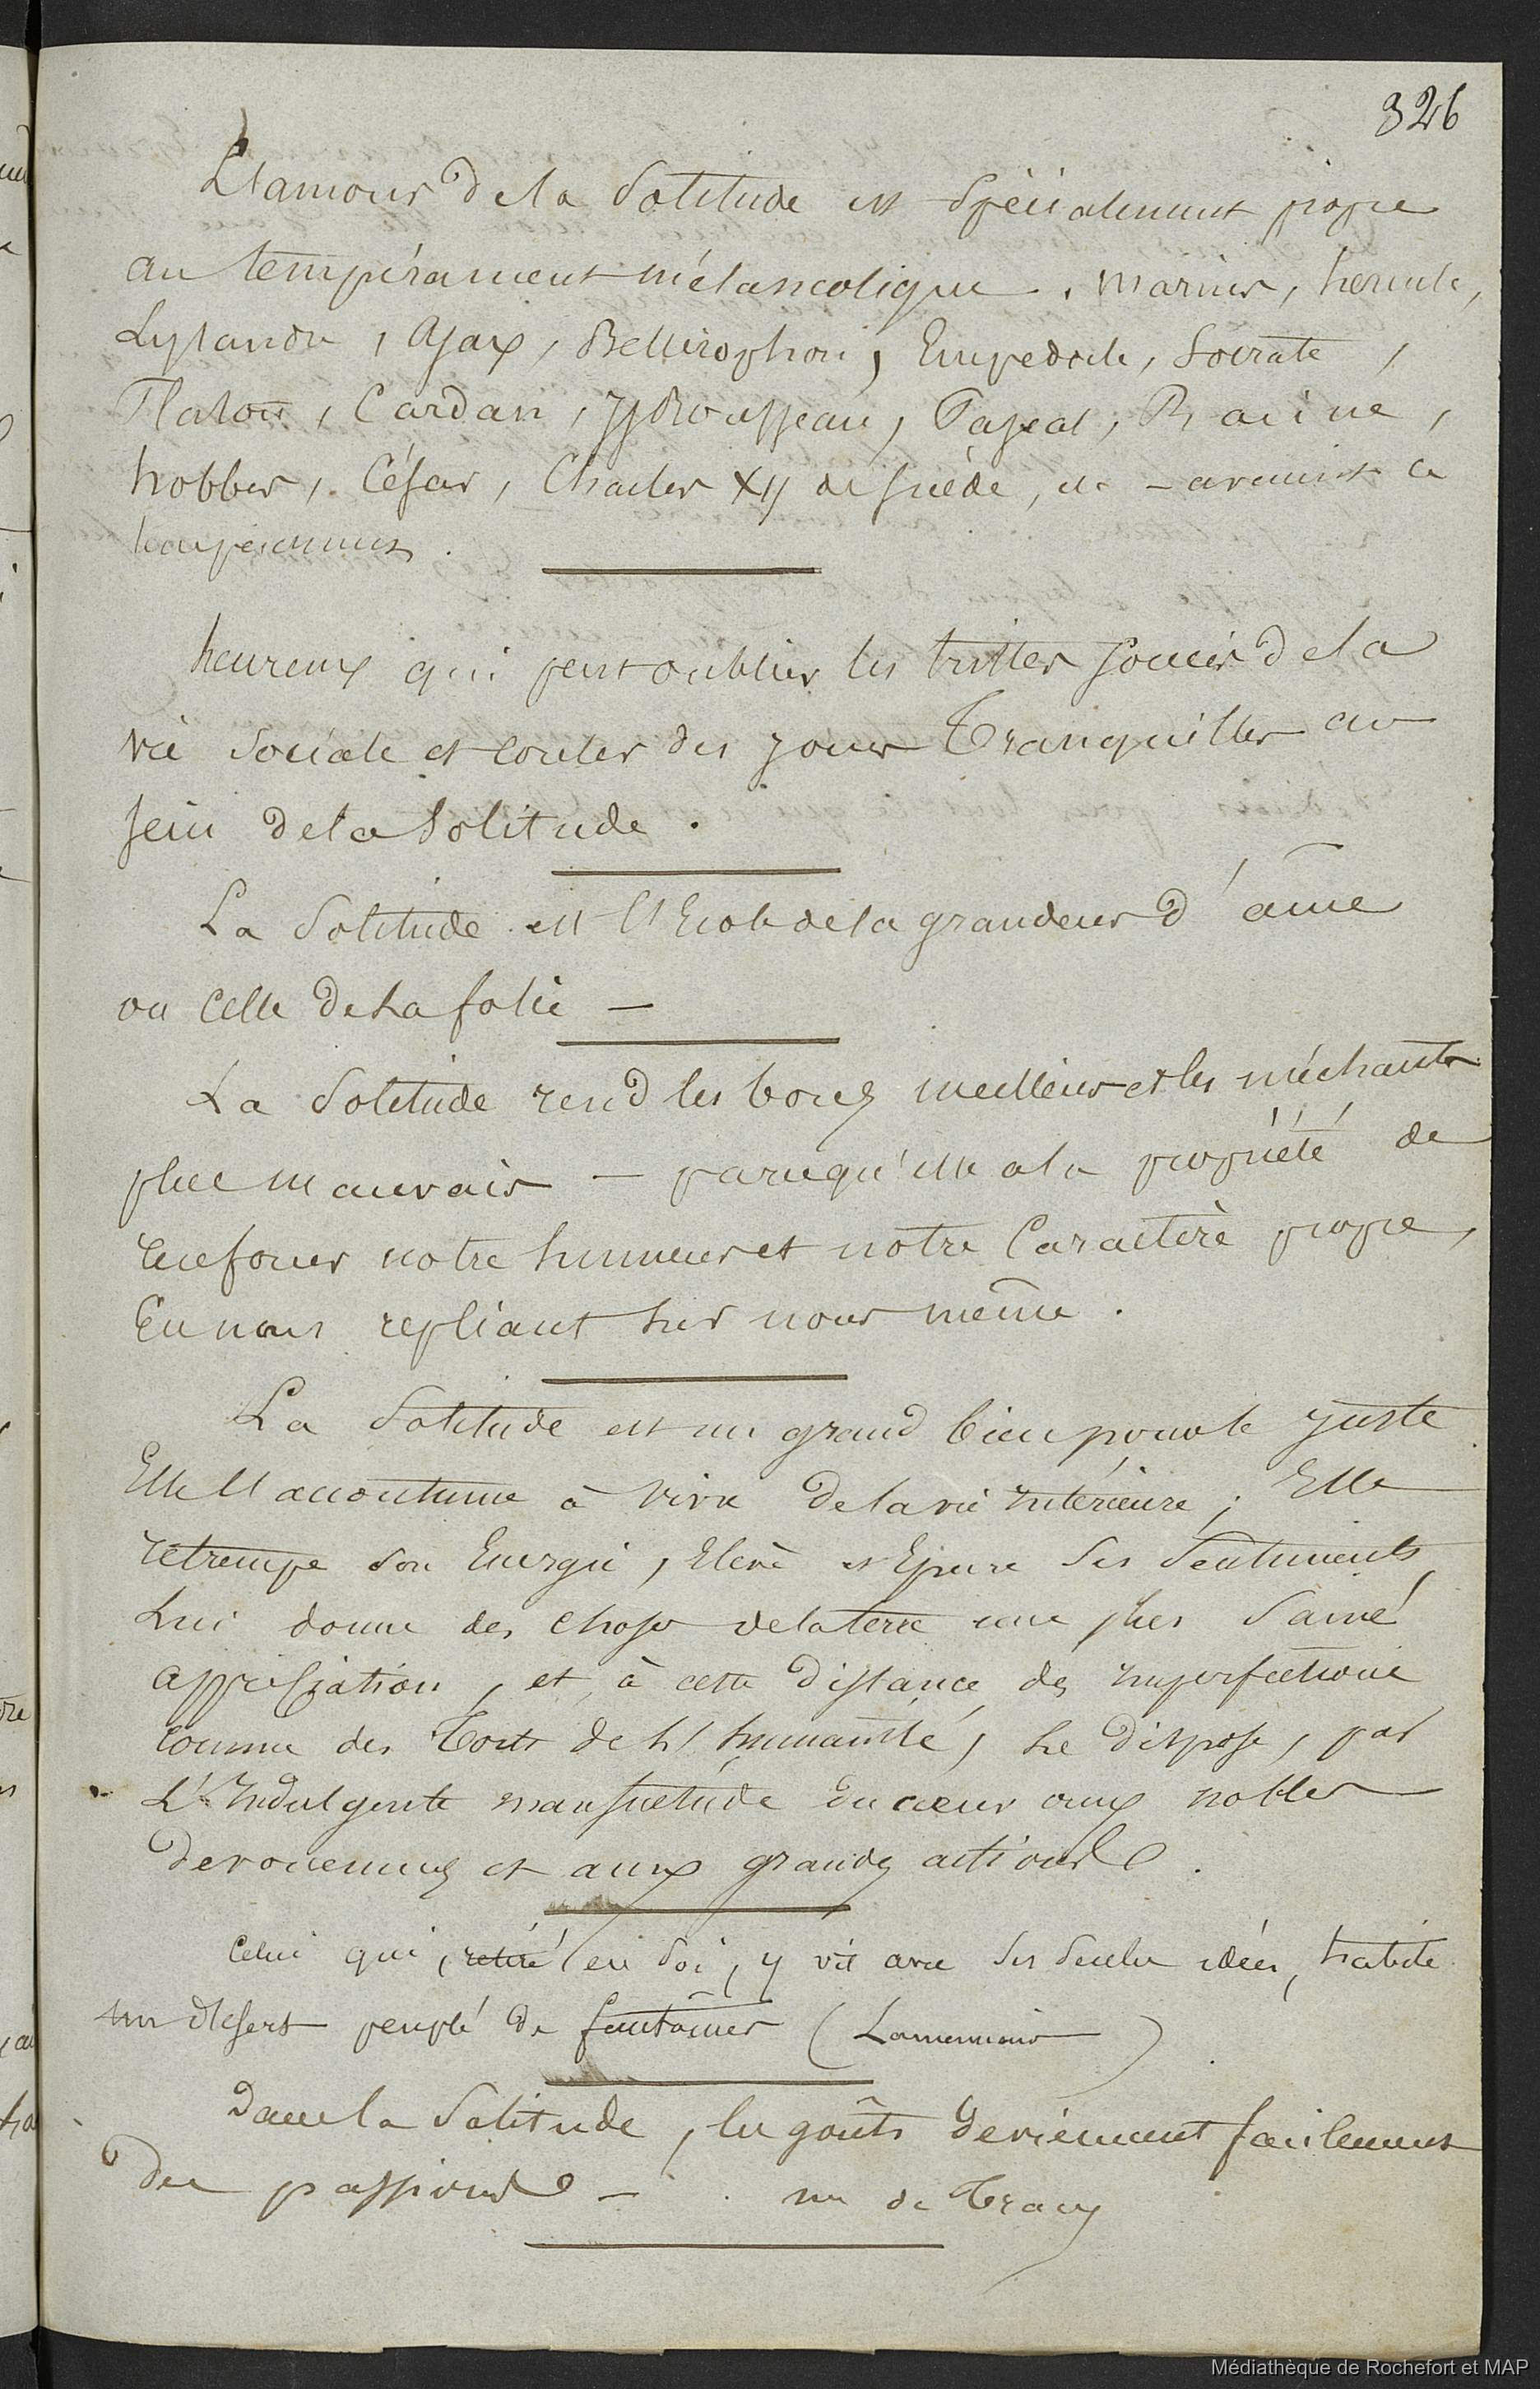 326
L'amour de la solitude est spécialement propre
au tempérament mélancolique. Marius, hercule,
Lysandre, Ajax, Bellérophon, Empedocle, Socrate,
Platon, Cardan, JJ Rousseau, Pascal, Racine,
hobbes, César, Charles XII de suède, etc - avaient ce
tempérament.
heureux qui peut oublier les tristes soucis de la
vie sociale et couler des jours tranquilles au
sein de la solitude.
La solitude est l'Ecole de la grandeur d'âme
ou celle de la folie -
La solitude rend les bons meilleurs et les méchants
plus mauvais - parcequ'elle a la propriété de
renforcer notre humeur et notre caractère propre,
En nous repliant sur nous même.
La solitude est un grand bien pour le juste
Elle l'accoutume à vivre de la vie intérieure; Elle
retrempe son Energie, Elève et Epure ses sentiments,
Lui donne des choses de la terre une plus saine
appréciation, et, à cette distance des imperfections
comme des torts de l'humanité, le dispose, par
L'indulgente mansuétude du cœur aux nobles
dévouemens et aux grandes actions.
Celui qui, retiré en soi, y vit avec ses seules idées, habite
un désert peuplé de fantômes (Lamennais)
Dans la solitude, les goûts deviennent facilement
des passions - mr de Tracy
Médiathèque de Rochefort et MAP